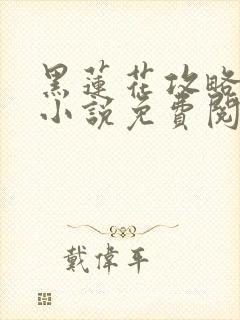 黑蓮花攻略
小說免費閱
戴偉平